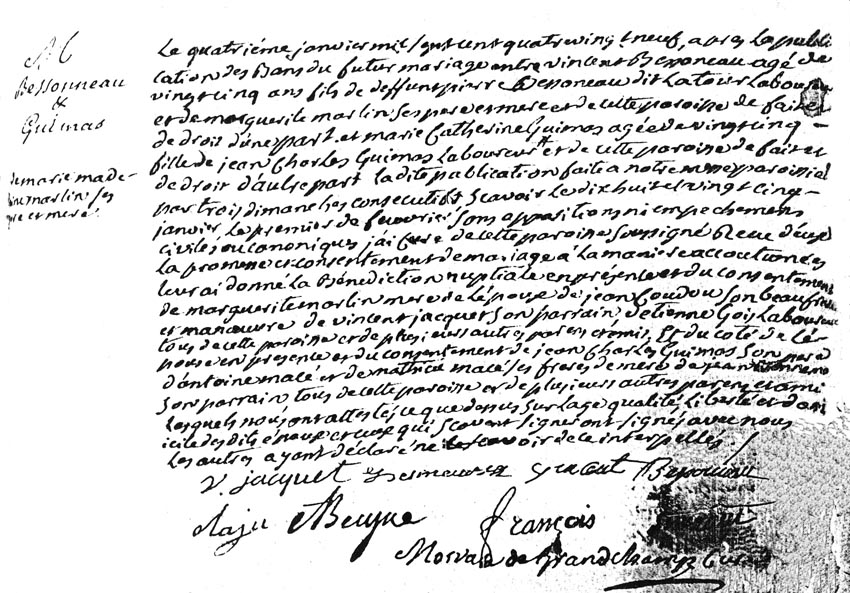 Bessonneau
&
Guimas
de marie made-
ne marlin ses
re et mere
Le quatriéme janvier mil sept cent quatre vingt neuf, apres la publi
cation des bans du futur mariage entre vincent Bessonneau agé de
vingt cinq ans fils de deffunt pierre Bessoneau dit La tour Laboureur
et de marguerite marlin ses pere et mere et de cette paroisse de fait et
de droit d'une part. et marie Catherine Guimas agée de vingt cinq -
fille de jean Charles Guimas Laboureur et de cette paroisse de fait et
de droit d'autre part la dite publication faite a notre messe paroissiale
par trois dimanches consecutifs scavoir le dix huit et vingt cinq -
janvier le premier de fevrier sans oppositions ni empechemens
civiles ou canoniques j'ai curé de cette paroisse soussigné Recu d'eux
la promesse et consentement de mariage à la maniere accoutumée et
leur ai donné la Bénédiction nuptiale en présence et du consentement
de marguerite marlin mere de l'époux de jean Coudou son beau frere
et manœuvre de vincent jacquet son parrain d'etienne Gois Laboureur
tous de cette paroisse et de plusieurs autres parens et amis, Et du coté de l'é-
pouse en presence et du consentement de jean Charles Guimas son pere
d'antoine malé et de maturice malé ses freres de mere de jean
son parrain tous de cette paroisse et de plusieurs autres parens et ami
Lesquels nous ont attesté ce que dessus sur l'age qualité Liberté et dom
icile des dits époux et ceux qui scavent signer ont signés avec nous
Les autres ayant déclaré ne le scavoir de ce interpellés /.
V. jacquet vincent Bessonneau
François
Morvan de Grandchamp Curé